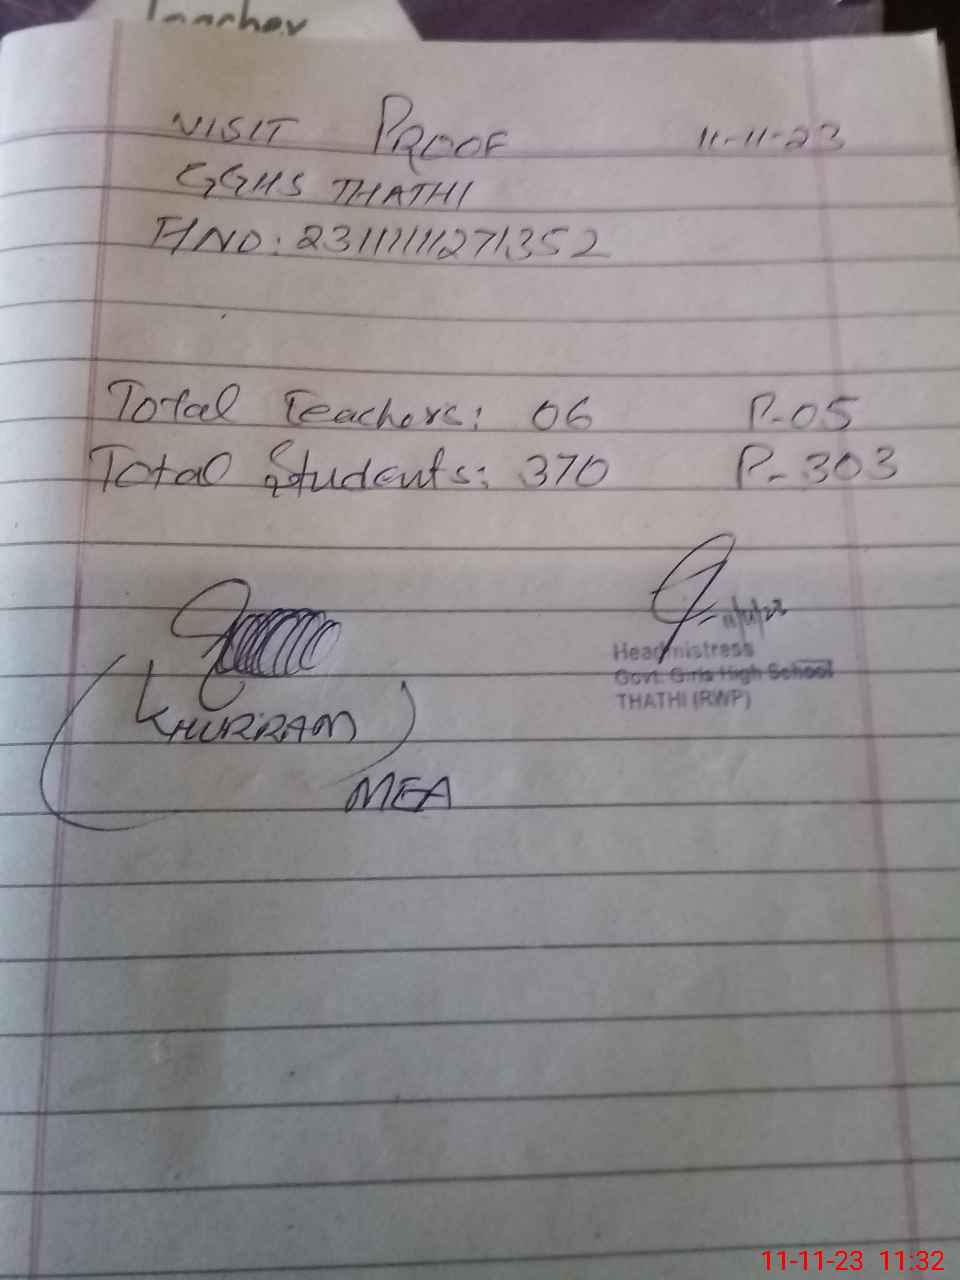 Teacher
VISIT PROOF 11-11-23
GGHS THATHI
Total Teachers: 06 P-05
Total Students: 370 P-303
11/11/23
Headmistress
Govt. Girls High School
THATHI (RWP)
(KHURRAM)
MEA
11-11-23 11:32